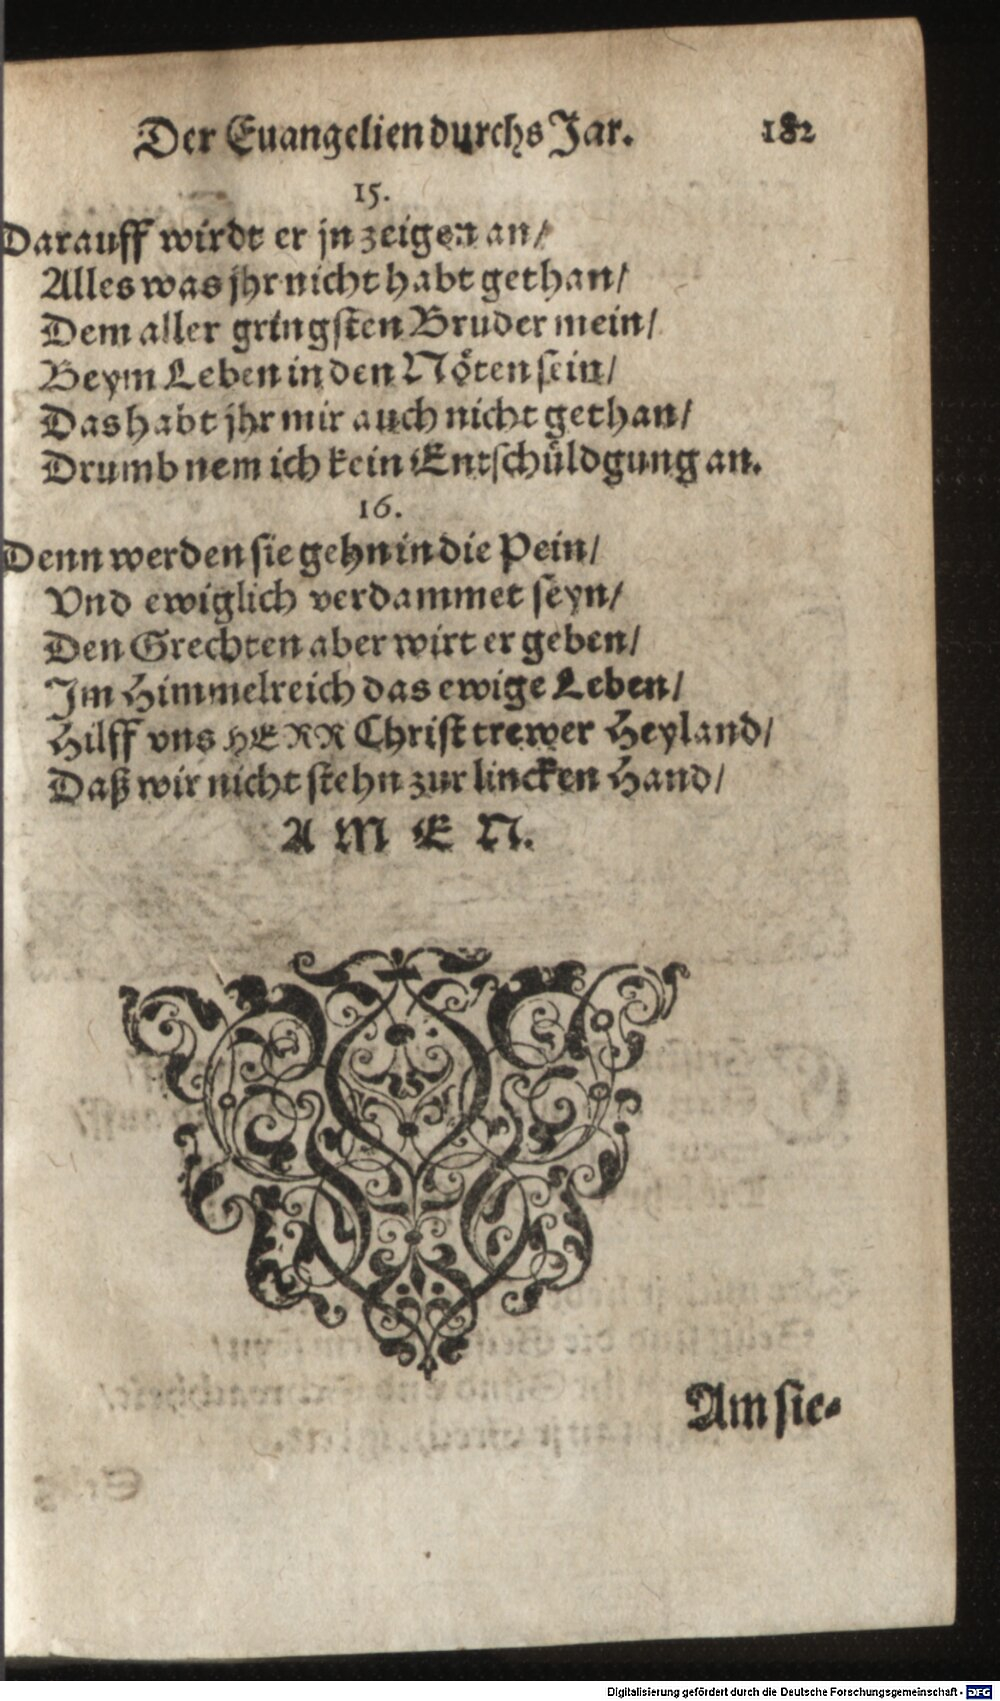 Der Euangelien durchs Jar. 182
15.
Darauff wirdt er jn zeigen an/
Alles was jhr nicht habt gethan/
Dem aller gringsten Bruder mein/
Beym Leben in den Nöten sein/
Das habt jhr mir auch nicht gethan/
Drumb nem ich kein Entschüldgung an.
16.
Denn werden sie gehn in die Pein/
Vnd ewiglich verdammet seyn/
Den Grechten aber wirt er geben/
Im Himmelreich das ewige Leben/
Hilff vns HERR Christ trewer Heyland/
Daß wir nicht stehn zur lincken Hand/
AMEN.
Am sie-
Digitalisierung gefördert durch die Deutsche Forschungsgemeinschaft - DFG